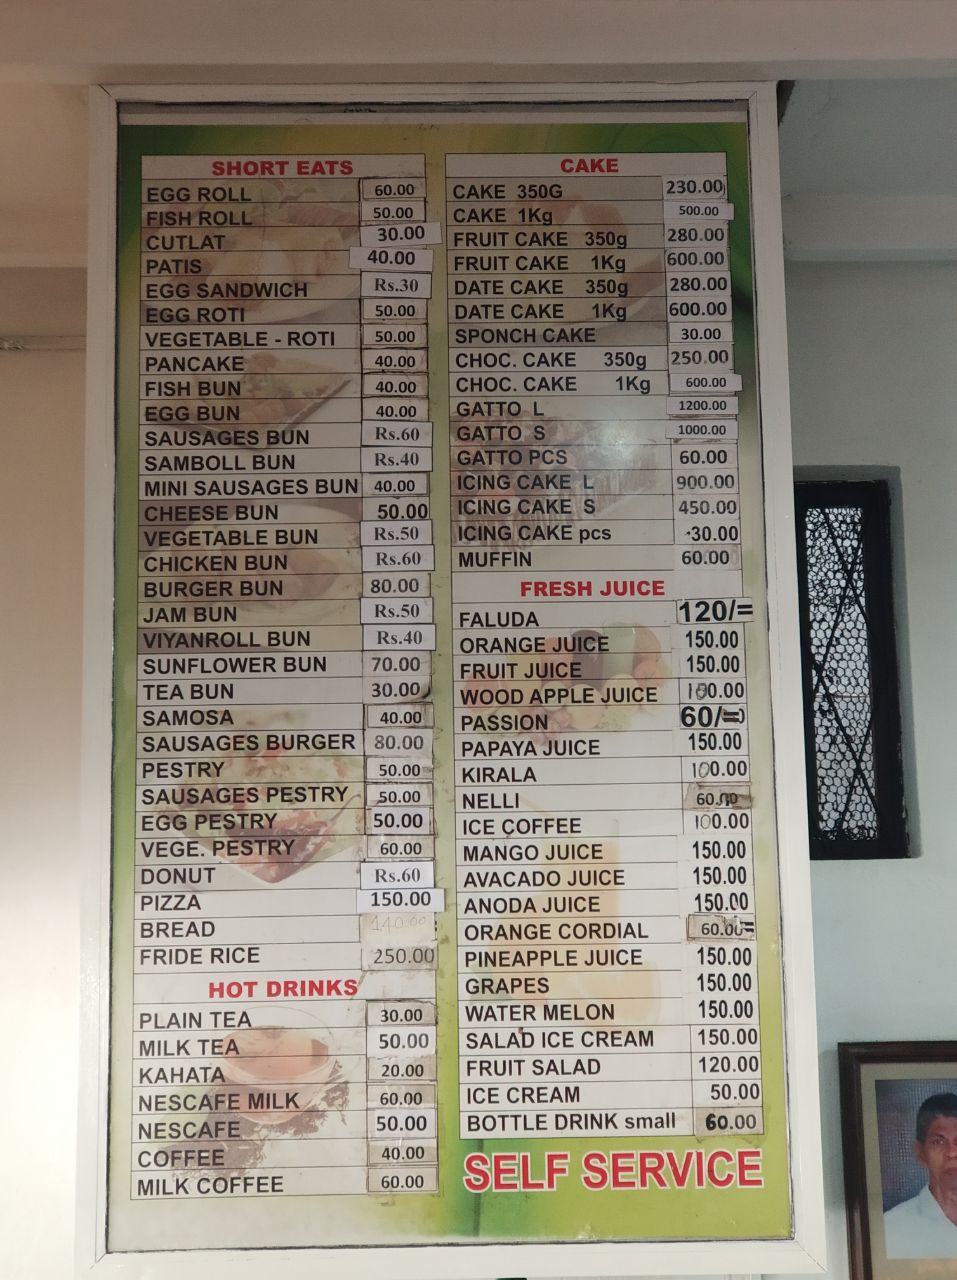 SHORT EATS
EGG ROLL 60.00
FISH ROLL 50.00
CUTLAT 30.00
PATIS 40.00
EGG SANDWICH Rs.30
EGG ROTI 50.00
VEGETABLE - ROTI 50.00
PANCAKE 40.00
FISH BUN 40.00
EGG BUN 40.00
SAUSAGES BUN Rs.60
SAMBOLL BUN Rs.40
MINI SAUSAGES BUN 40.00
CHEESE BUN 50.00
VEGETABLE BUN Rs.50
CHICKEN BUN Rs.60
BURGER BUN 80.00
JAM BUN Rs.50
VIYANROLL BUN Rs.40
SUNFLOWER BUN 70.00
TEA BUN 30.00
SAMOSA 40.00
SAUSAGES BURGER 80.00
PESTRY 50.00
SAUSAGES PESTRY 50.00
EGG PESTRY 50.00
VEGE. PESTRY 60.00
DONUT Rs.60
PIZZA 150.00
BREAD 140.00
FRIDE RICE 250.00
HOT DRINKS
PLAIN TEA 30.00
MILK TEA 50.00
KAHATA 20.00
NESCAFE MILK 60.00
NESCAFE 50.00
COFFEE 40.00
MILK COFFEE 60.00
CAKE
CAKE 350G 230.00
CAKE 1Kg 500.00
FRUIT CAKE 350g 280.00
FRUIT CAKE 1Kg 600.00
DATE CAKE 350g 280.00
DATE CAKE 1Kg 600.00
SPONCH CAKE 30.00
CHOC. CAKE 350g 250.00
CHOC. CAKE 1Kg 600.00
GATTO L 1200.00
GATTO S 1000.00
GATTO PCS 60.00
ICING CAKE L 900.00
ICING CAKE S 450.00
ICING CAKE pcs 30.00
MUFFIN 60.00
FRESH JUICE
FALUDA 120/=
ORANGE JUICE 150.00
FRUIT JUICE 150.00
WOOD APPLE JUICE 100.00
PASSION 60/=
PAPAYA JUICE 150.00
KIRALA 100.00
NELLI 60.00
ICE COFFEE 100.00
MANGO JUICE 150.00
AVACADO JUICE 150.00
ANODA JUICE 150.00
ORANGE CORDIAL 60.00
PINEAPPLE JUICE 150.00
GRAPES 150.00
WATER MELON 150.00
SALAD ICE CREAM 150.00
FRUIT SALAD 120.00
ICE CREAM 50.00
BOTTLE DRINK small 60.00
SELF SERVICE